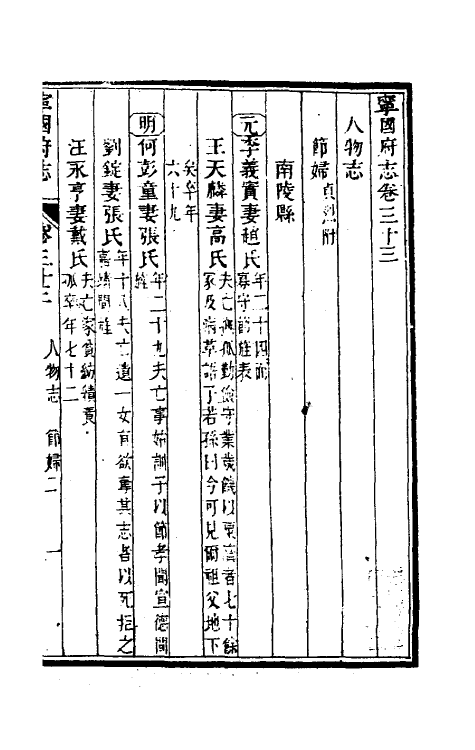 寧國府志卷三十三
人物志
節婦貞烈附
南陵縣
元李義實妻趙氏年二十四而
寡守節旌表
王天麟妻高氏夫亡無孤勤儉守業歲饑以粟濟者七十餘
家及病革語子若孫曰今可見爾祖父地下
矣卒年
六十九
明何彭童妻張氏年二十九夫亡事姑訓子以節孝聞宣德間
旌
劉錠妻張氏年十八夫亡遺一女有欲奪其志者以死拒之
嘉靖間旌
汪永亨妻戴氏夫亡家貧紡績育
孤卒年七十二
寧國府志 卷三十三 人物志 節婦二 一